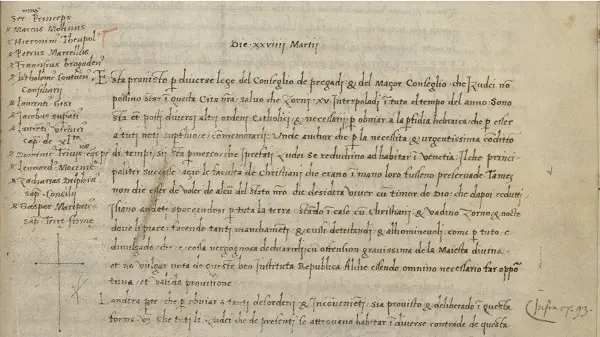 Ser.mus Princeps
Marcus Molinus
Hieronim. Theupol.
Petrus Marcellus
Franciscus bragaden.
Consiliarii
Laurent. Gisi
Cap. de XL.ta
Leonard. Mocenic.
Zacharias Delphin.
sap. Consilii
Gaspar Maripet.
sap. Terre firme
Die . xxviiii Martii
Esta provisto p diverse leze del Conseglio de pregadi & del Mazor Conseglio che Zudei no
possino star i questa Cita nra salvo che zorni xv Interpoladi i tuto el tempo del anno. Sono
sta et posti diversi altri ordeni Catholici & necessarii p obviar a la pfidia hebraica che p esser
a tuti noti supfluo e comemorarli. Unde anchor che p la necessita & urgentissima coditio
di tempi sii sta pmesso che prefati zudei se reduchino ad habitar i Venetia. Il che princi-
paliter succese acio le faculta de Christiani che erano i mano loro fusseno preservade. Tamen
non die esser de voler de alcu del stato nro che desidera viver cu timor de Dio che dapoi redutti
stiano sparsi p tuta la terra stado i case cu Christiani & vadino zorno & nocte
dove li piace, facendo tanti manchameti & cussi detestandi & abhominevoli come p tuto e
divulgado che e cossa vergognosa cu offension gravissima de la Maiesta divina
et no vulgar nota de questa ben instituta Republica Al che essendo omnino necessario far oppo
tuna et valida provisione.
Landera pte che p obviar a tanti desordeni & Incovenieti sia provisto & deliberado i questa
forma. che tuti li zudei che de presenti se attrovano habitar i diverse contrade de questa
Infra c. 93.